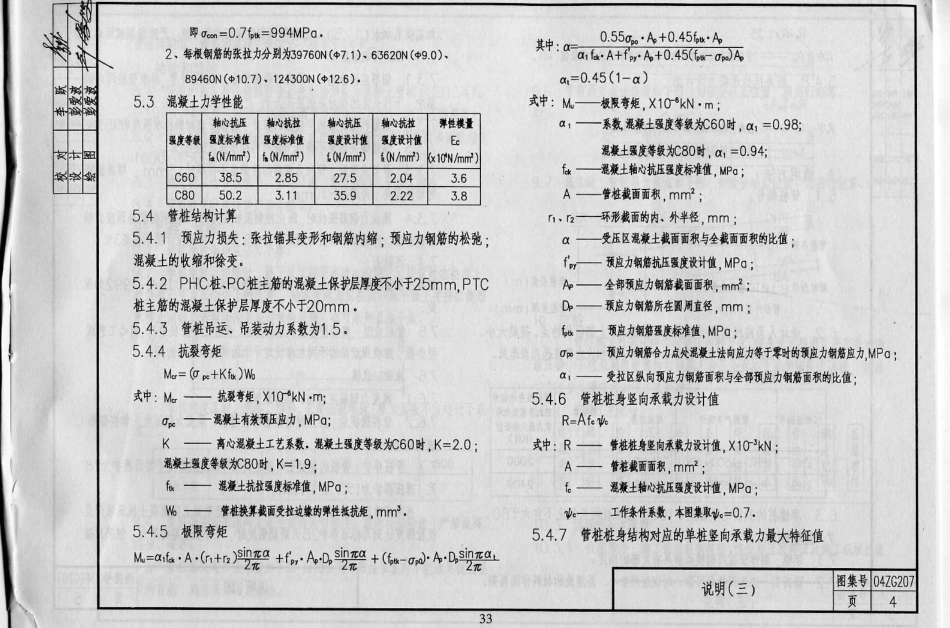 即 σcon=0.7fptk=994MPa。
2、每根钢筋的张拉力分别为39760N(Φ7.1)、63620N(Φ9.0)、
89460N(Φ10.7)、124300N(Φ12.6)。
5.3 混凝土力学性能
强度等级 轴心抗压强度标准值 fck(N/mm²) 轴心抗拉强度标准值 ftk(N/mm²) 轴心抗压强度设计值 fc(N/mm²) 轴心抗拉强度设计值 ft(N/mm²) 弹性模量 Ec (x10⁴N/mm²)
C60 38.5 2.85 27.5 2.04 3.6
C80 50.2 3.11 35.9 2.22 3.8
5.4 管桩结构计算
5.4.1 预应力损失：张拉锚具变形和钢筋内缩；预应力钢筋的松弛；
混凝土的收缩和徐变。
5.4.2 PHC桩、PC桩主筋的混凝土保护层厚度不小于25mm,PTC
桩主筋的混凝土保护层厚度不小于20mm。
5.4.3 管桩吊运、吊装动力系数为1.5。
5.4.4 抗裂弯矩
Mcr=(σpc+Kftk)W₀
式中：Mcr —— 抗裂弯矩,X10⁻⁶kN·m;
σpc —— 混凝土有效预压应力,MPa;
K —— 离心混凝土工艺系数。混凝土强度等级为C60时,K=2.0;
混凝土强度等级为C80时,K=1.9;
ftk —— 混凝土抗拉强度标准值,MPa;
W₀ —— 管桩换算截面受拉边缘的弹性抵抗矩,mm³。
5.4.5 极限弯矩
Mu=α₁fck·A·(r₁+r₂)sinπα/2π +f'py·Ap·Dp sinπα/2π +(fptk-σp0)·Ap·Dp sinπαt/2π
其中：α=0.55σp0·Ap+0.45fptk·Ap/α₁fck·A+f'py·Ap+0.45(fptk-σp0)Ap
αt=0.45(1-α)
式中：Mu —— 极限弯矩,X10⁻⁶kN·m;
α₁ —— 系数,混凝土强度等级为C60时,α₁=0.98;
混凝土强度等级为C80时,α₁=0.94;
fck —— 混凝土轴心抗压强度标准值,MPa;
A —— 管桩截面面积,mm²;
r₁、r₂ —— 环形截面的内、外半径,mm;
α —— 受压区混凝土截面面积与全截面面积的比值;
f'py —— 预应力钢筋抗压强度设计值,MPa;
Ap —— 全部预应力钢筋截面面积,mm²;
Dp —— 预应力钢筋所在圆周直径,mm;
fptk —— 预应力钢筋强度标准值,MPa;
σp0 —— 预应力钢筋合力点处混凝土法向应力等于零时的预应力钢筋应力,MPa;
αt —— 受拉区纵向预应力钢筋面积与全部预应力钢筋面积的比值;
5.4.6 管桩桩身竖向承载力设计值
R=Afcψc
式中：R —— 管桩桩身竖向承载力设计值,X10⁻³kN;
A —— 管桩截面面积,mm²;
fc —— 混凝土轴心抗压强度设计值,MPa;
ψc —— 工作条件系数,本图集取ψc=0.7。
5.4.7 管桩桩身结构对应的单桩竖向承载力最大特征值
校 对
设 计
绘 图
说明(三)
图集号 04ZG207
页 4
33